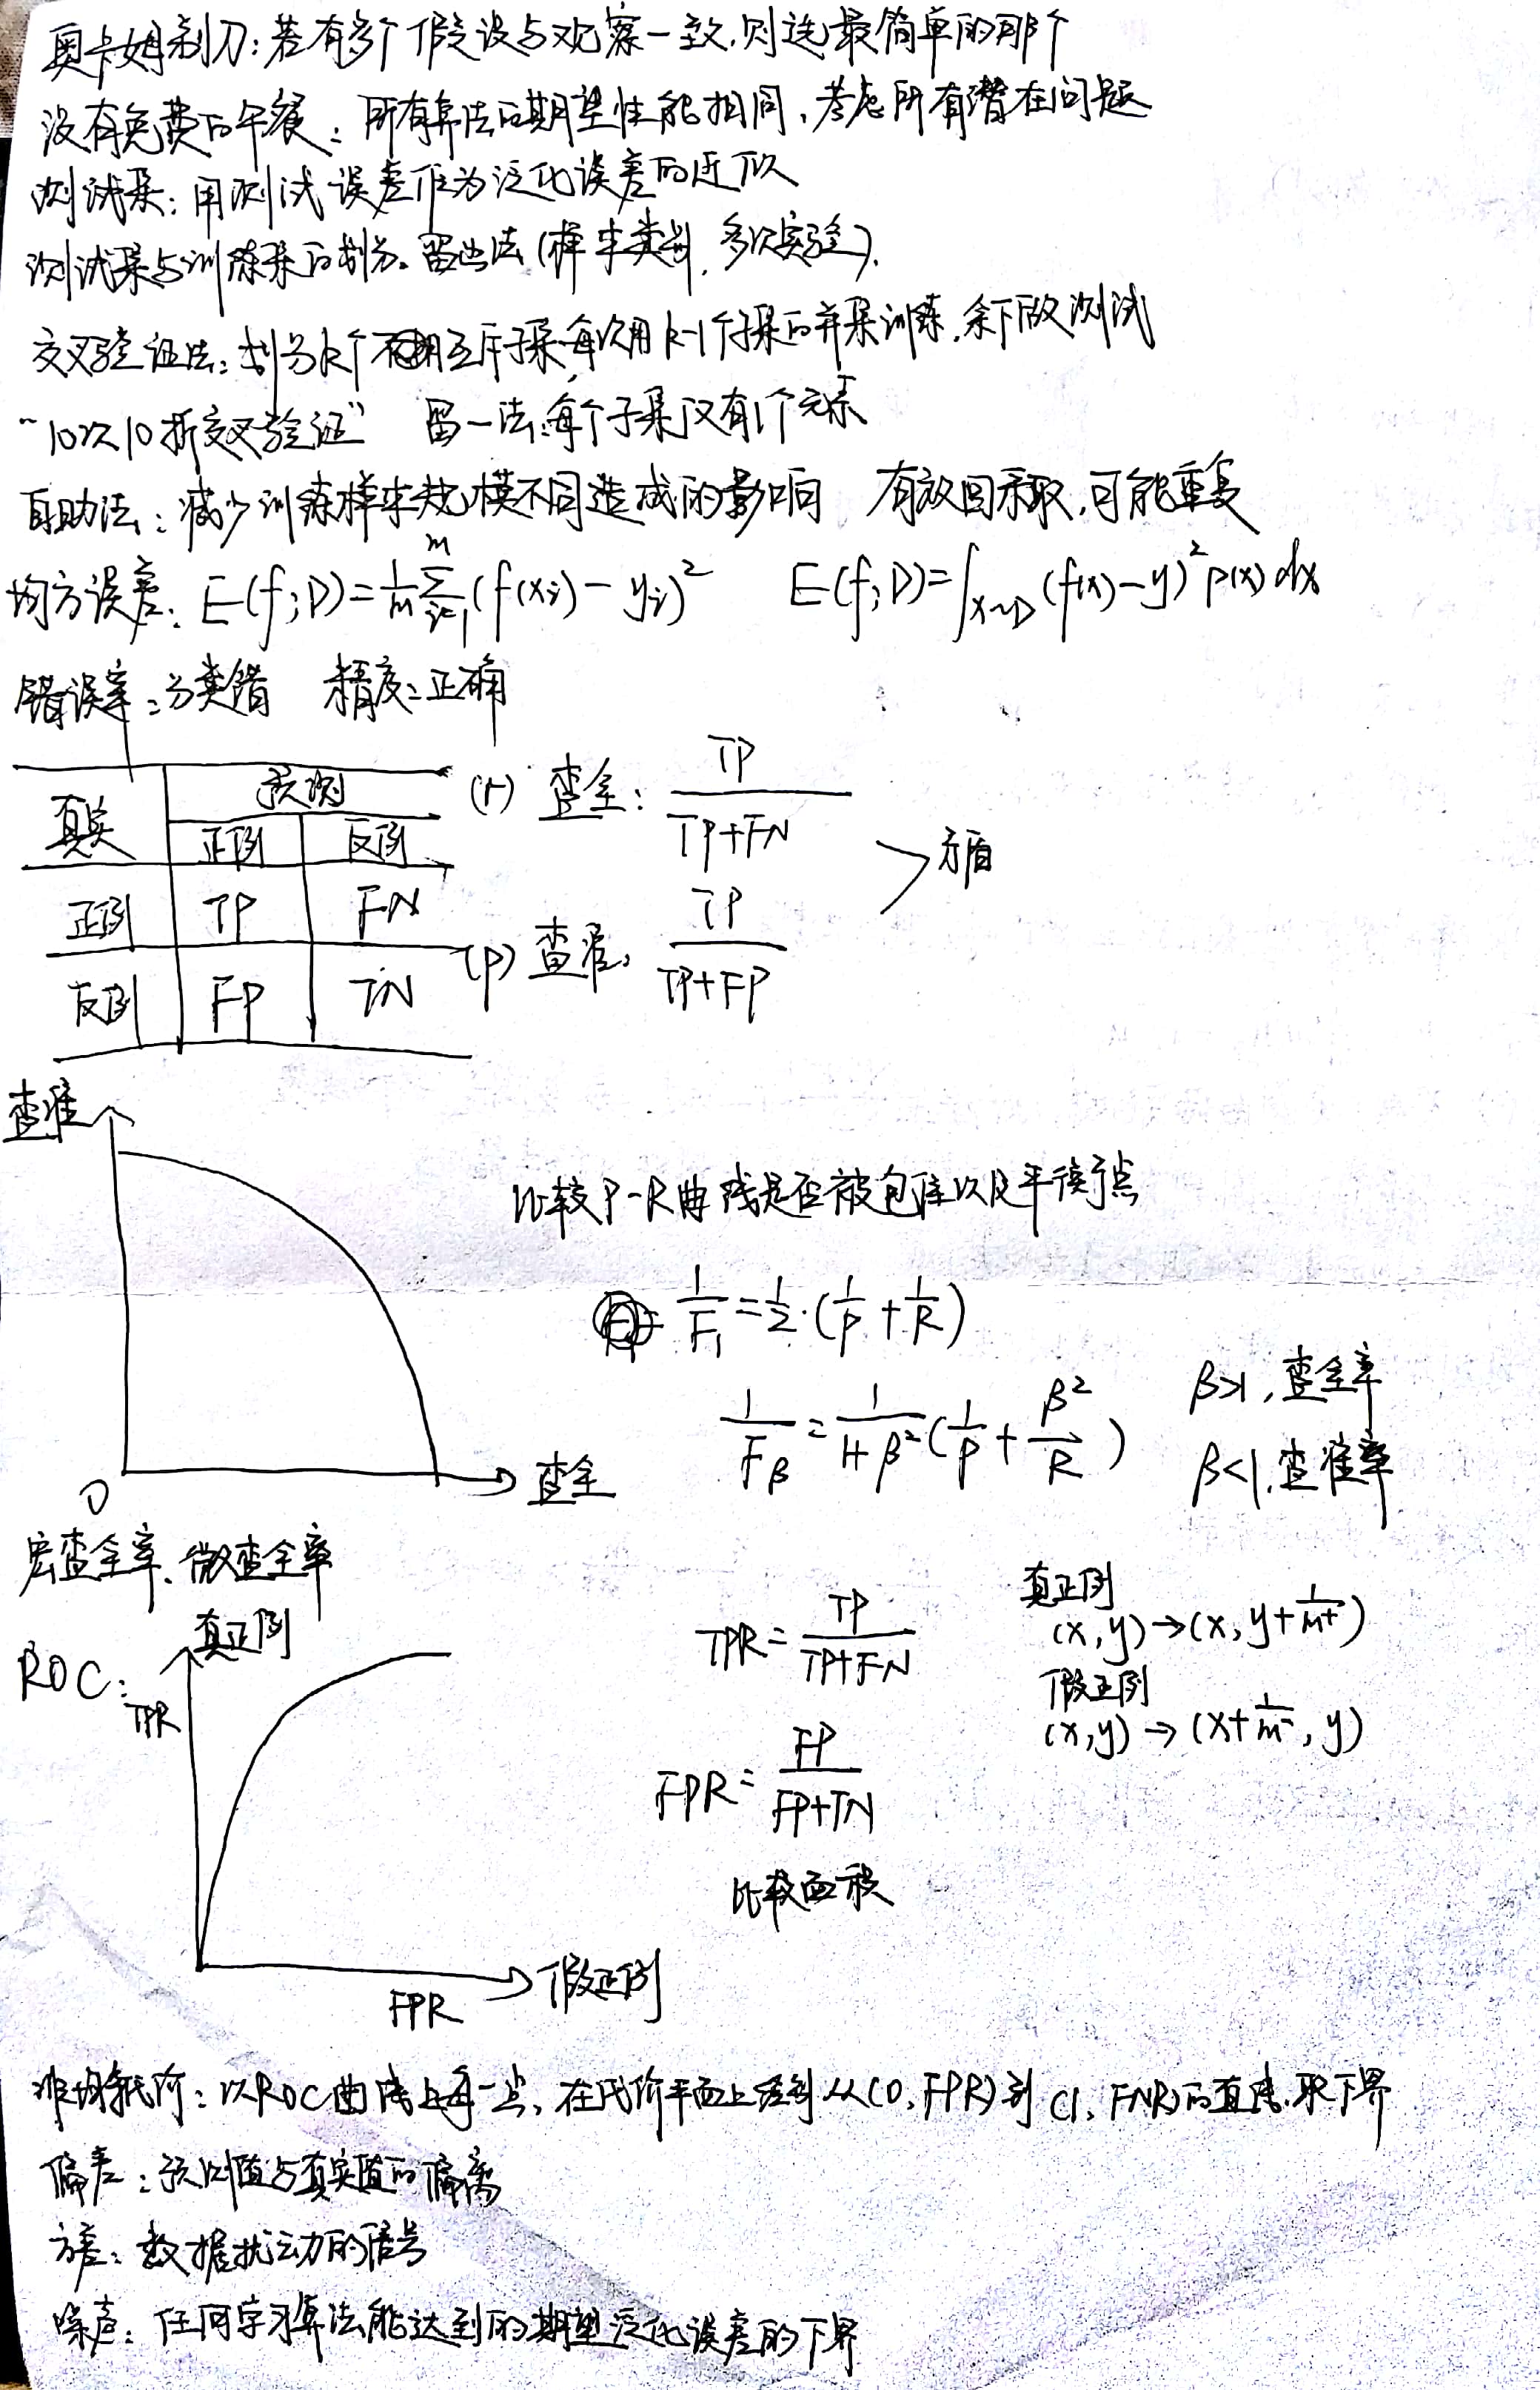 奥卡姆剃刀:若有多个假设与观察一致,则选最简单的那个
没有免费的午餐:所有算法的期望性能相同,考虑所有潜在问题
测试集:用测试误差作为泛化误差的近似
测试集与训练集的划分。留出法(样本类别,多次实验).
交叉验证法:划分k个互斥子集,每次用k-1个子集的并集训练,余下做测试
“10次10折交叉验证” 留一法:每个子集仅有1个元素
自助法:减少训练样本规模不同造成的影响 有放回采取,可能重复
均方误差: E(f;D)=\frac{1}{m}\sum_{i=1}^{m}(f(x_i)-y_i)^2 E(f;D)=\int_{x\sim D}(f(x)-y)^2p(x)dx
错误率:分类错 精度:正确
真实 预测
正例 反例
正例 TP FN
反例 FP TN
(r) 查全: \frac{TP}{TP+FN}
(p) 查准: \frac{TP}{TP+FP}
>矛盾
查准
比较P-R曲线是否被包住以及平衡点
\frac{1}{F_1}=\frac{1}{2}\cdot(\frac{1}{P}+\frac{1}{R})
\frac{1}{F_β}=\frac{1}{1+β^2}(\frac{1}{P}+\frac{β^2}{R})
β>1,查全率
β<1,查准率
0 查全
宏查全率、微查全率
ROC: 真正例
TPR
TPR=\frac{TP}{TP+FN}
真正例
(x,y)→(x,y+\frac{1}{m^+})
假正例
(x,y)→(x+\frac{1}{m^-},y)
FPR=\frac{FP}{FP+TN}
比较面积
FPR 假正例
非均等代价:以ROC曲线上每一点,在代价平面上绘制从(0,FPR)到(1,FNR)的直线,取下界
偏差:预测值与真实值的偏离
方差:数据扰动的信号
噪声:任何学习算法能达到的期望泛化误差的下界